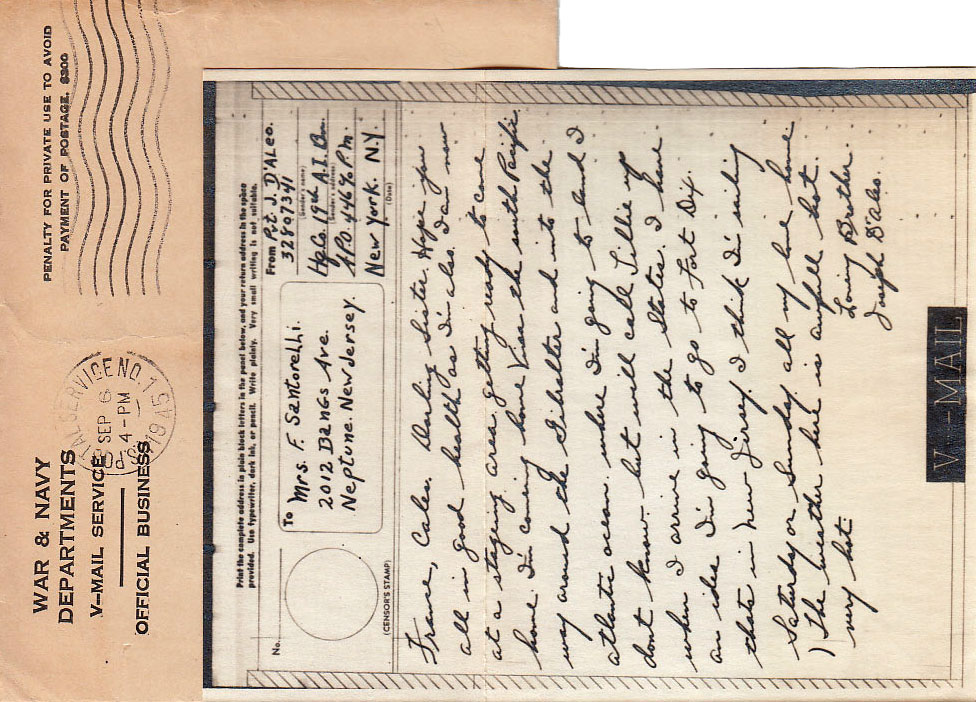 WAR & NAVY
DEPARTMENTS
V-MAIL SERVICE
OFFICIAL BUSINESS
PENALTY FOR PRIVATE USE TO AVOID
PAYMENT OF POSTAGE, $300
SERVICE NO. 1
SEP 6
4-PM
1945
Print the complete address in plain block letters in the panel below, and your return address in the space
provided. Use typewriter, dark ink, or pencil. Write plainly. Very small writing is not suitable.
No.
(CENSOR'S STAMP)
To
Mrs. F. Santorelli.
2012 Bangs Ave.
Neptune. New Jersey.
From Pvt. J. D'Aleo.
32807341
(Sender's name)
Hq. Co. 19th A.I. Bn.
(Sender's address)
A.P.O. 446 % P.M.
New York. N.Y
(Date)
France, Calas. Darling Sister. Hope you
all in good health as I'm also. I am now
at a stageing area getting ready to come
home. I'm coming home Viss the south Pacific
way around the Gibralter and into the
atlantic ocean. where I'm going to land I
dont know. but will call Tillie up
when I arrive in the States. I have
an idea I'm going to go to Fort Dix.
thats in new Jersey. I think I'm sailing
Saturday or Sunday all my love home
) The weather here is awfull hot.
very hot
Loving Brother.
Joseph D'aleo.
V---MAIL